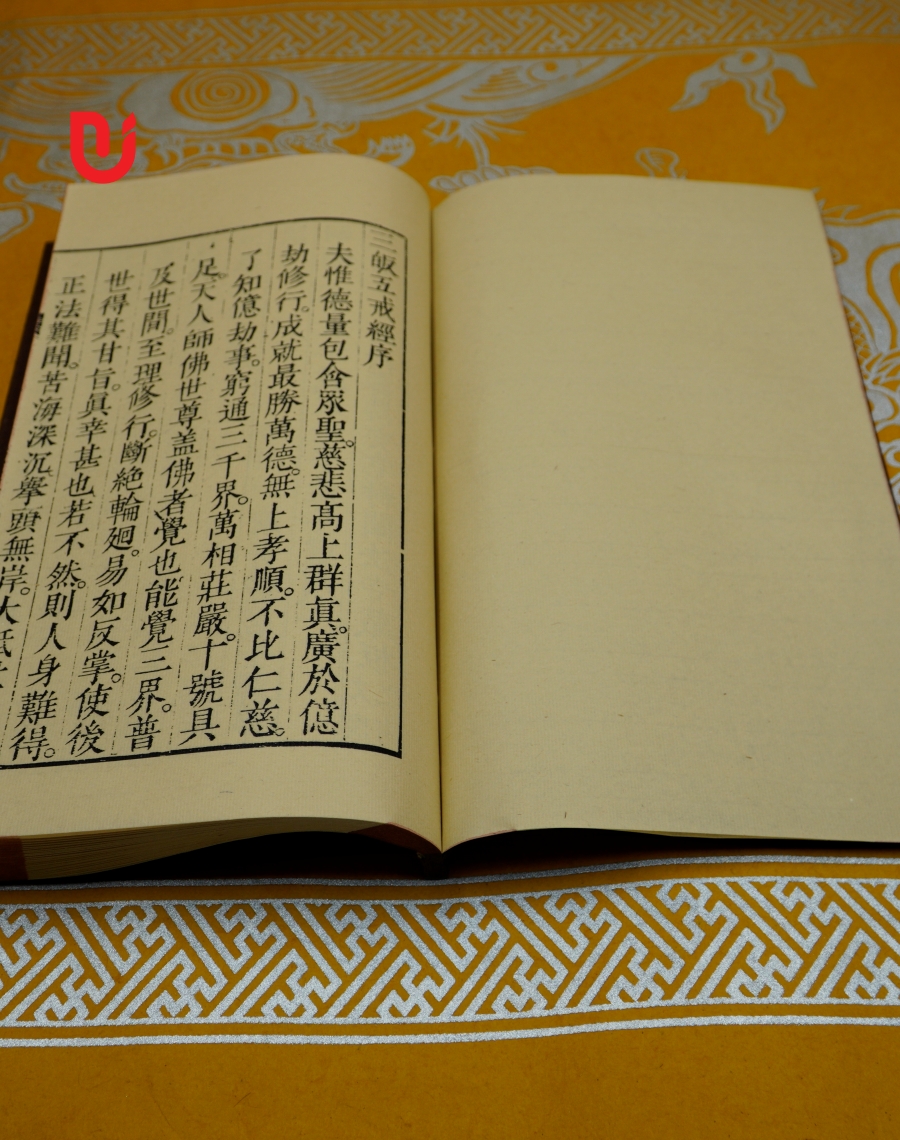 三皈五戒經序
夫惟德量包含眾聖。慈悲高上群眞。廣於億
劫修行。成就最勝萬德。無上孝順。不比仁慈。
了知億劫事。窮通三千界。萬相莊嚴。十號具
足。天人師佛世尊盖佛者覺也能覺三界。普
及世間。至理修行。斷絶輪廻。易如反掌。使後
世得其甘旨。眞幸甚也若不然。則人身難得。
正法難聞。苦海深沉擧頭無岸。大